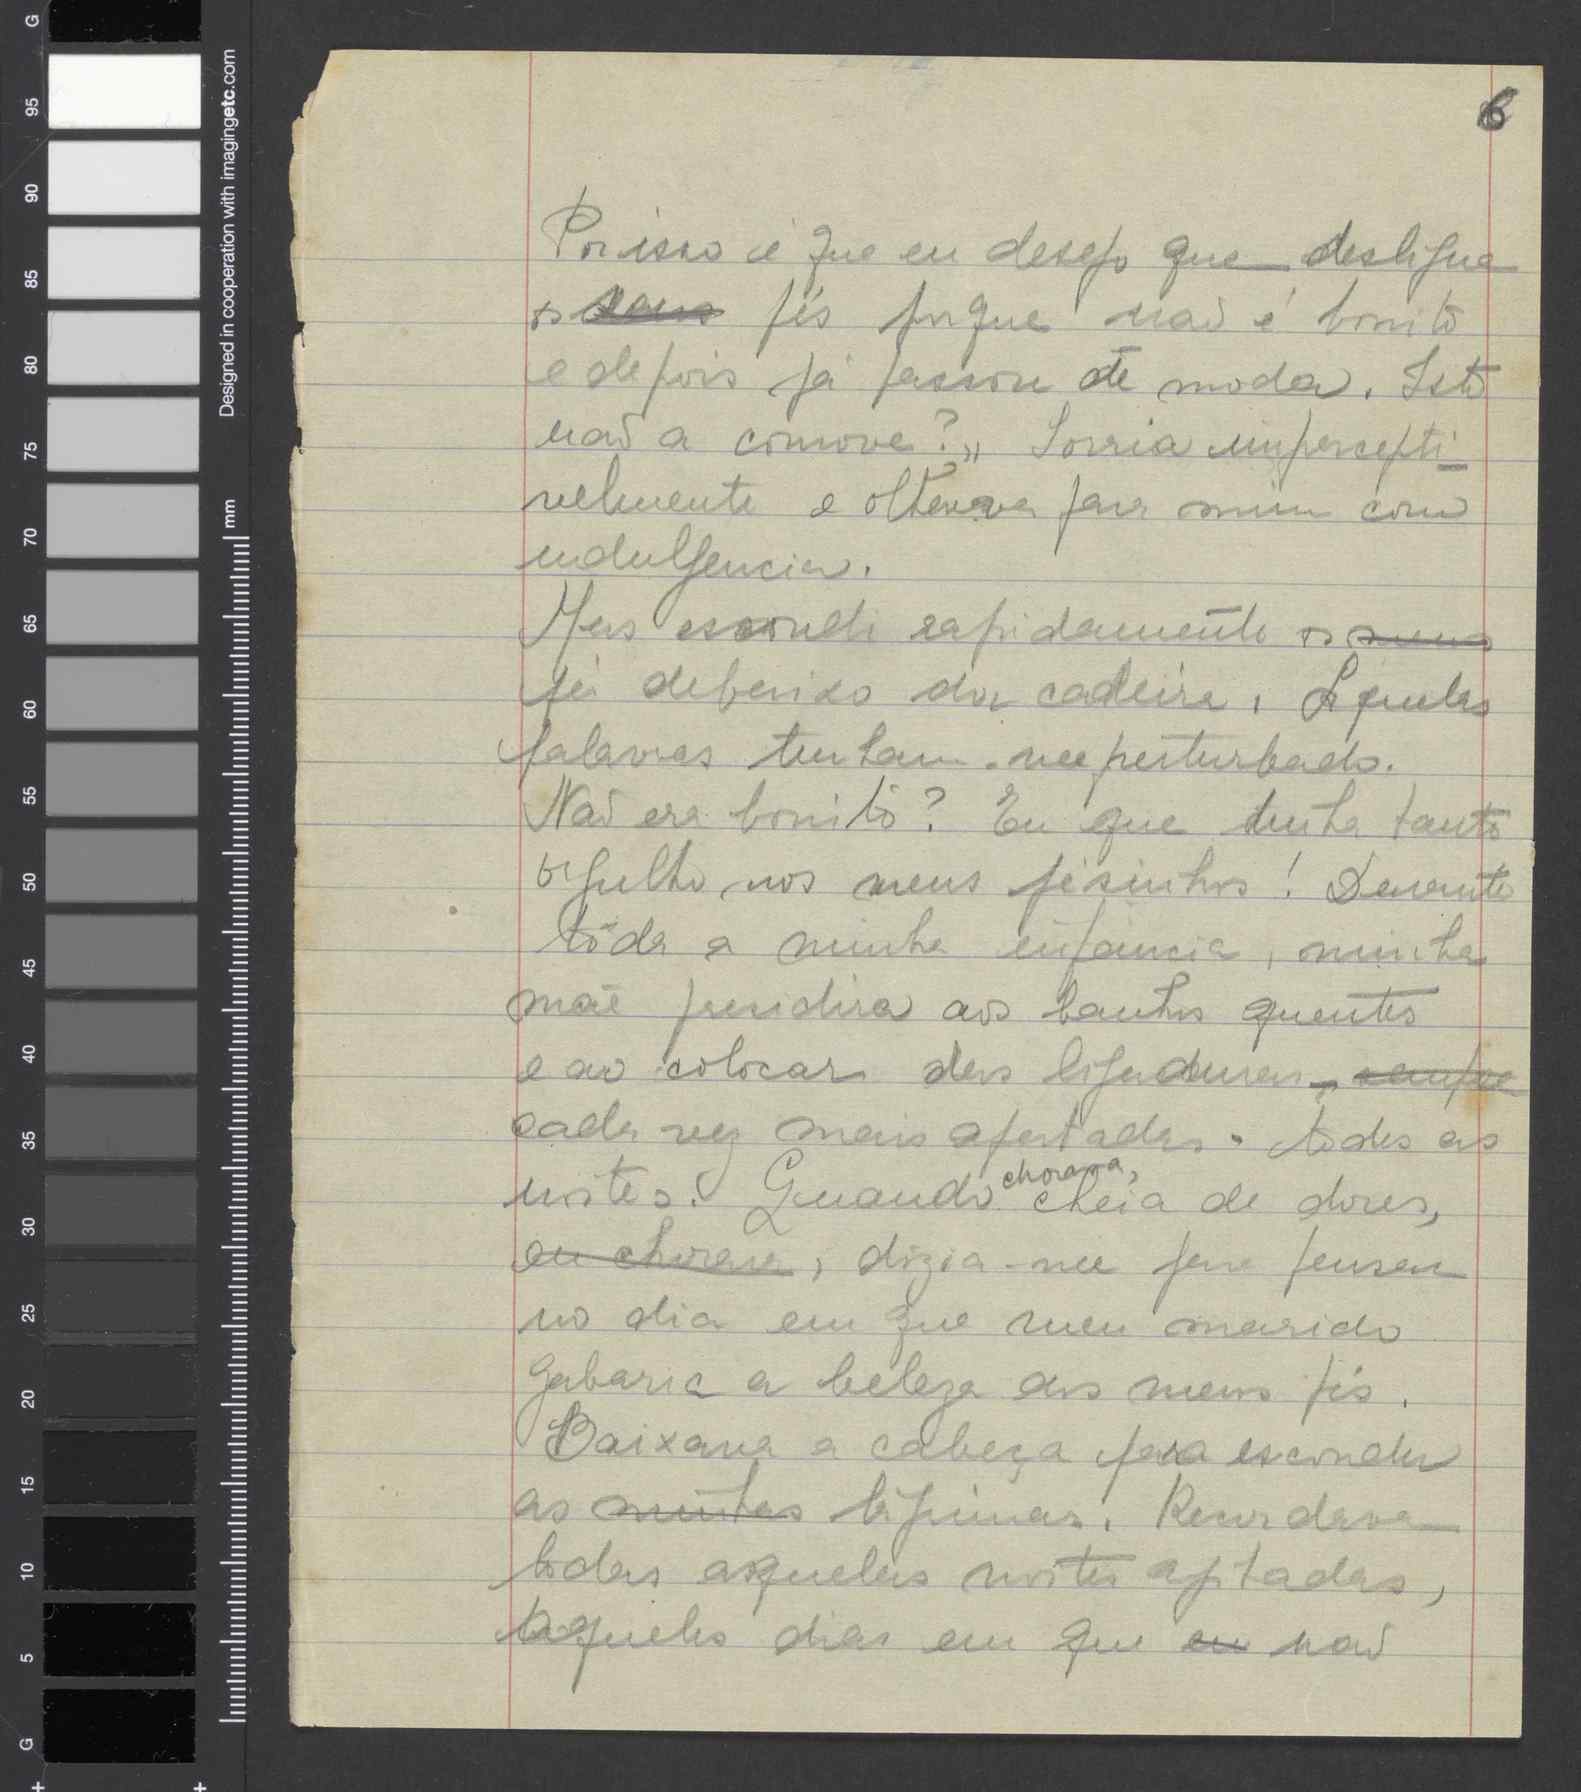 6
Por isso é que eu desejo que desligue
os seus pés porque não é bonito
e depois já passou de moda. Isto
não a comove?" Sorria impercepti
velmente e olhava para mim com
indulgencia.
Mas escondi rapidamente os meus
pés debaixo da cadeira. Aquelas
palavras tinham-me perturbado.
Não era bonito? Eu que tinha tanto
orgulho nos meus pésinhos! Durante
tôda a minha infância, minha
mãe presidira aos banhos quentes
e ao colocar das ligaduras, sempre
cada vez mais apertadas. todas as
noites. Quando chorava, cheia de dores,
eu chorava, dizia-me para pensar
no dia em que meu marido
gabaria a beleza dos meus pés.
Baixava a cabeça para esconder
as minhas lágrimas. Recordava
todas aquelas noites agitadas,
aqueles dias em que eu não
Designed in cooperation with imagingetc.com
mm
G
95
90
85
80
75
70
65
60
55
50
45
40
35
30
25
20
15
10
5
G